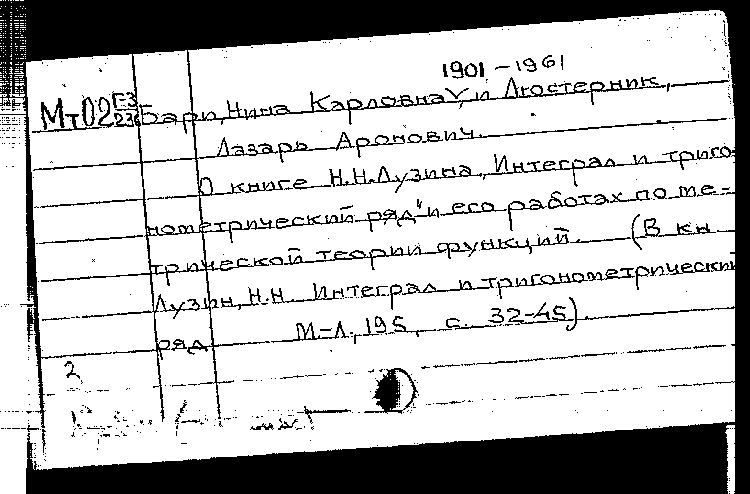 1901-1961
Мт02 Г-3 Бари, Нина Карловна, и Люстерник,
Лазарь Аронович.
О книге Н.Н.Лузина „Интеграл и триго-
нометрический ряд" и его работах по ме-
трической теории функций. (В кн
Лузин, Н.Н. Интеграл и тригонометрический
ряд М-Л., 195 , с. 32-45).